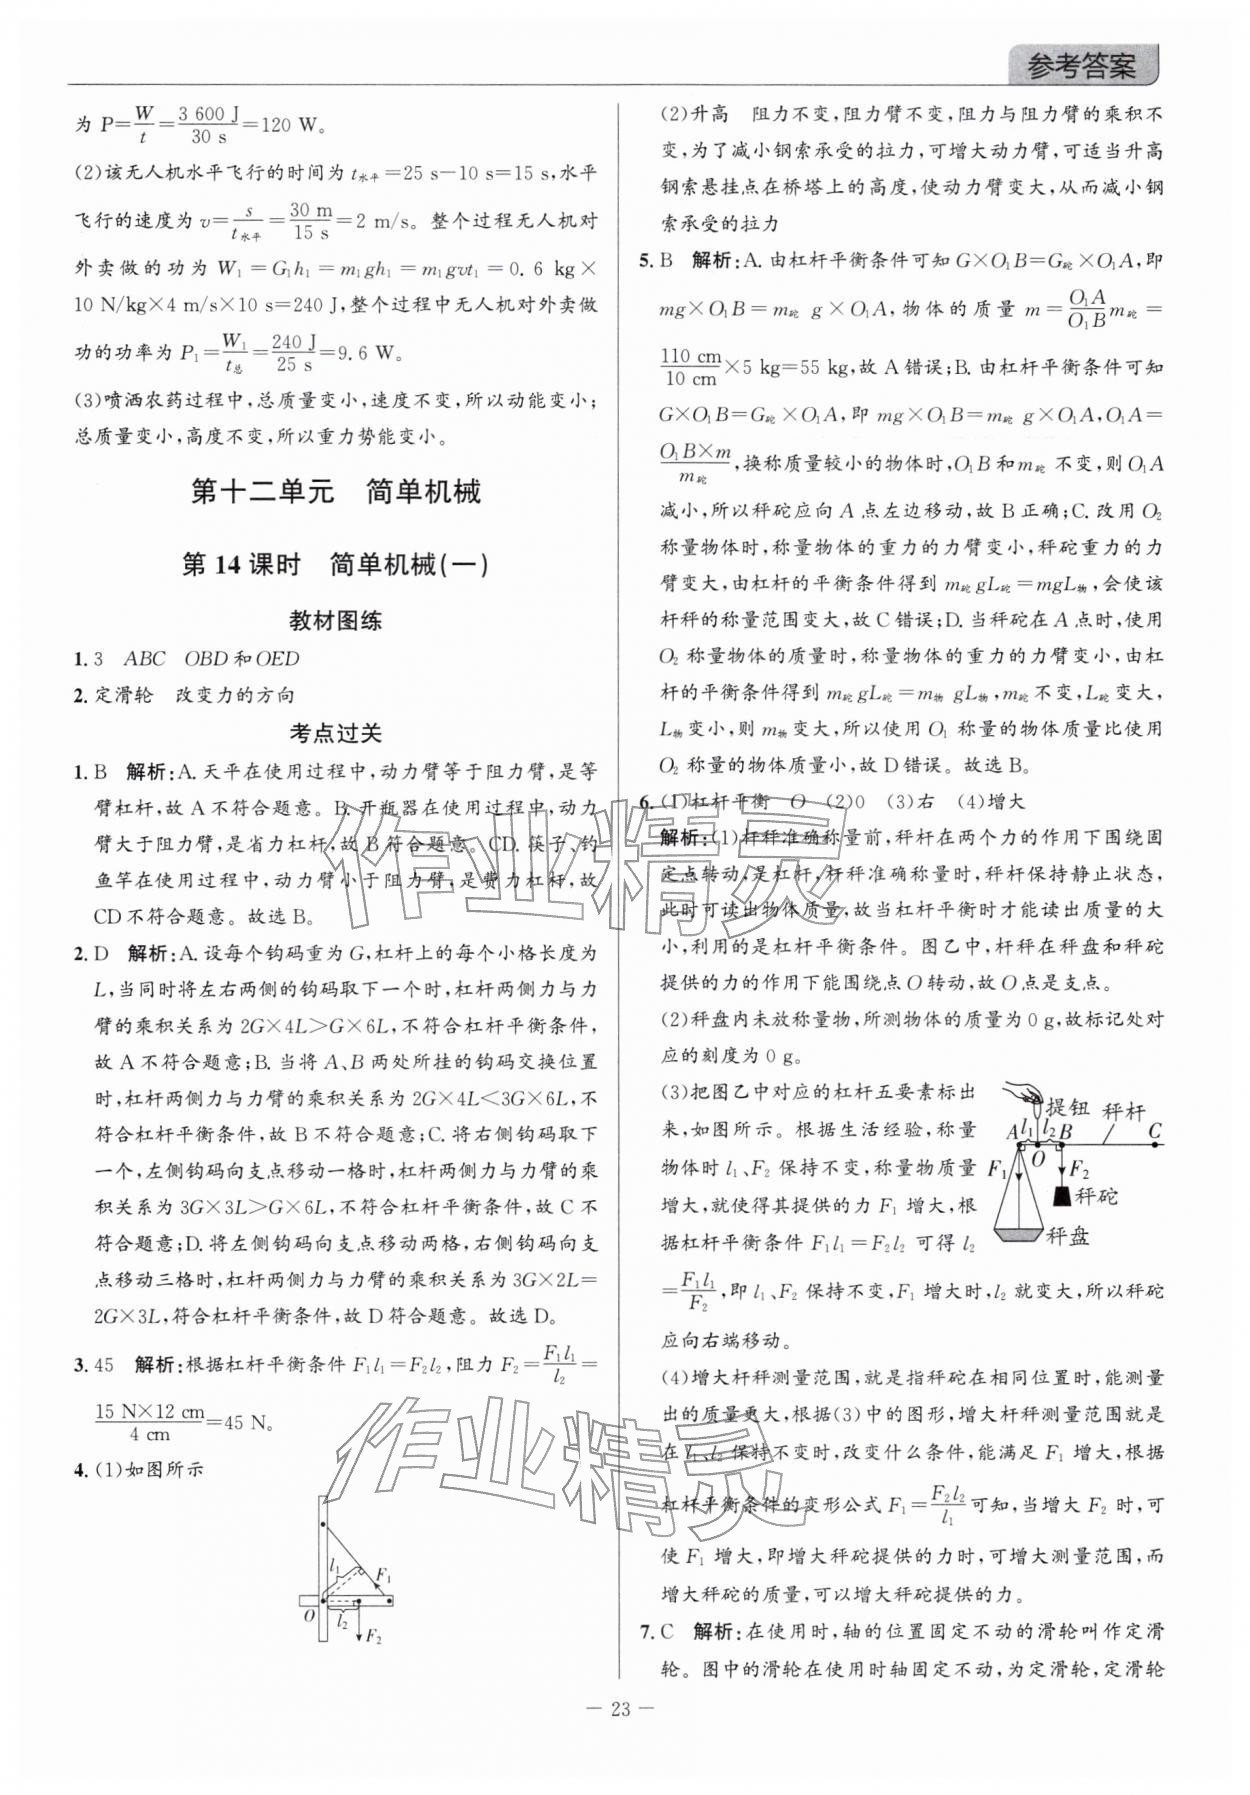 参考答案
为 P=W/t=3 600 J/30 s=120 W。
(2)该无人机水平飞行的时间为 t水平=25 s-10 s=15 s,水平
飞行的速度为 v=s/t水平=30 m/15 s=2 m/s。整个过程无人机对
外卖做的功为 W₁=G₁h₁=m₁gh₁=m₁gvt₁=0.6 kg×
10 N/kg×4 m/s×10 s=240 J,整个过程中无人机对外卖做
功的功率为 P₁=W₁/t总=240 J/25 s=9.6 W。
(3)喷洒农药过程中,总质量变小,速度不变,所以动能变小;
总质量变小,高度不变,所以重力势能变小。
第十二单元 简单机械
第14课时 简单机械(一)
教材图练
1. 3 ABC OBD和OED
2. 定滑轮 改变力的方向
考点过关
1. B 解析:A.天平在使用过程中,动力臂等于阻力臂,是等
臂杠杆,故A不符合题意。B.开瓶器在使用过程中,动力
臂大于阻力臂,是省力杠杆,故B符合题意。CD.筷子、钓
鱼竿在使用过程中,动力臂小于阻力臂,是费力杠杆,故
CD不符合题意。故选B。
2. D 解析:A.设每个钩码重为G,杠杆上的每个小格长度为
L,当同时将左右两侧的钩码取下一个时,杠杆两侧力与力
臂的乘积关系为2G×4L>G×6L,不符合杠杆平衡条件,
故A不符合题意;B.当将A、B两处所挂的钩码交换位置
时,杠杆两侧力与力臂的乘积关系为2G×4L<3G×6L,不
符合杠杆平衡条件,故B不符合题意;C.将右侧钩码取下
一个,左侧钩码向支点移动一格时,杠杆两侧力与力臂的乘
积关系为3G×3L>G×6L,不符合杠杆平衡条件,故C不
符合题意;D.将左侧钩码向支点移动两格,右侧钩码向支
点移动三格时,杠杆两侧力与力臂的乘积关系为3G×2L=
2G×3L,符合杠杆平衡条件,故D符合题意。故选D。
3. 45 解析:根据杠杆平衡条件F₁l₁=F₂l₂,阻力F₂=F₁l₁/l₂=
15 N×12 cm/4 cm=45 N。
4. (1)如图所示
l₁
F₁
O
l₂
F₂
(2)升高 阻力不变,阻力臂不变,阻力与阻力臂的乘积不
变,为了减小钢索承受的拉力,可增大动力臂,可适当升高
钢索悬挂点在桥塔上的高度,使动力臂变大,从而减小钢
索承受的拉力
5. B 解析:A.由杠杆平衡条件可知G×O₁B=G砣×O₁A,即
mg×O₁B=m砣 g×O₁A,物体的质量 m=O₁A/O₁B m砣=
110 cm/10 cm×5 kg=55 kg,故A错误;B.由杠杆平衡条件可知
G×O₁B=G砣×O₁A,即 mg×O₁B=m砣 g×O₁A,O₁A=
O₁B×m/m砣,换称质量较小的物体时,O₁B和m砣 不变,则O₁A
减小,所以秤砣应向A点左边移动,故B正确;C.改用O₂
称量物体时,称量物体的重力的力臂变小,秤砣重力的力
臂变大,由杠杆的平衡条件得到 m砣gL砣=mgL物,会使该
杆秤的称量范围变大,故C错误;D.当秤砣在A点时,使用
O₂ 称量物体的质量时,称量物体的重力的力臂变小,由杠
杆的平衡条件得到 m砣gL砣=m物 gL物,m砣不变,L砣变大,
L物变小,则 m物变大,所以使用 O₁ 称量的物体质量比使用
O₂ 称量的物体质量小,故D错误。故选B。
6. (1)杠杆平衡 O (2)0 (3)右 (4)增大
解析:(1)杆秤准确称量前,秤杆在两个力的作用下围绕固
定点转动,是杠杆,杆秤准确称量时,秤杆保持静止状态,
此时可读出物体质量,故当杠杆平衡时才能读出质量的大
小,利用的是杠杆平衡条件。图乙中,杆秤在秤盘和秤砣
提供的力的作用下能围绕点O转动,故O点是支点。
(2)秤盘内未放称量物,所测物体的质量为0 g,故标记处对
应的刻度为0 g。
(3)把图乙中对应的杠杆五要素标出
来,如图所示。根据生活经验,称量
物体时 l₁、F₂ 保持不变,称量物质量
增大,就使得其提供的力 F₁ 增大,根
据杠杆平衡条件 F₁l₁=F₂l₂ 可得 l₂
=F₁l₁/F₂,即 l₁、F₂ 保持不变,F₁ 增大时,l₂ 就变大,所以秤砣
应向右端移动。
提钮
秤杆
A l₁ l₂ B C
O
F₁ F₂
秤砣
秤盘
(4)增大杆秤测量范围,就是指秤砣在相同位置时,能测量
出的质量更大,根据(3)中的图形,增大杆秤测量范围就是
在 l₁、l₂ 保持不变时,改变什么条件,能满足 F₁ 增大,根据
杠杆平衡条件的变形公式 F₁=F₂l₂/l₁可知,当增大 F₂ 时,可
使 F₁ 增大,即增大秤砣提供的力时,可增大测量范围,而
增大秤砣的质量,可以增大秤砣提供的力。
7. C 解析:在使用时,轴的位置固定不动的滑轮叫作定滑
轮。图中的滑轮在使用时轴固定不动,为定滑轮,定滑轮
— 23 —
作业精灵
作业精灵